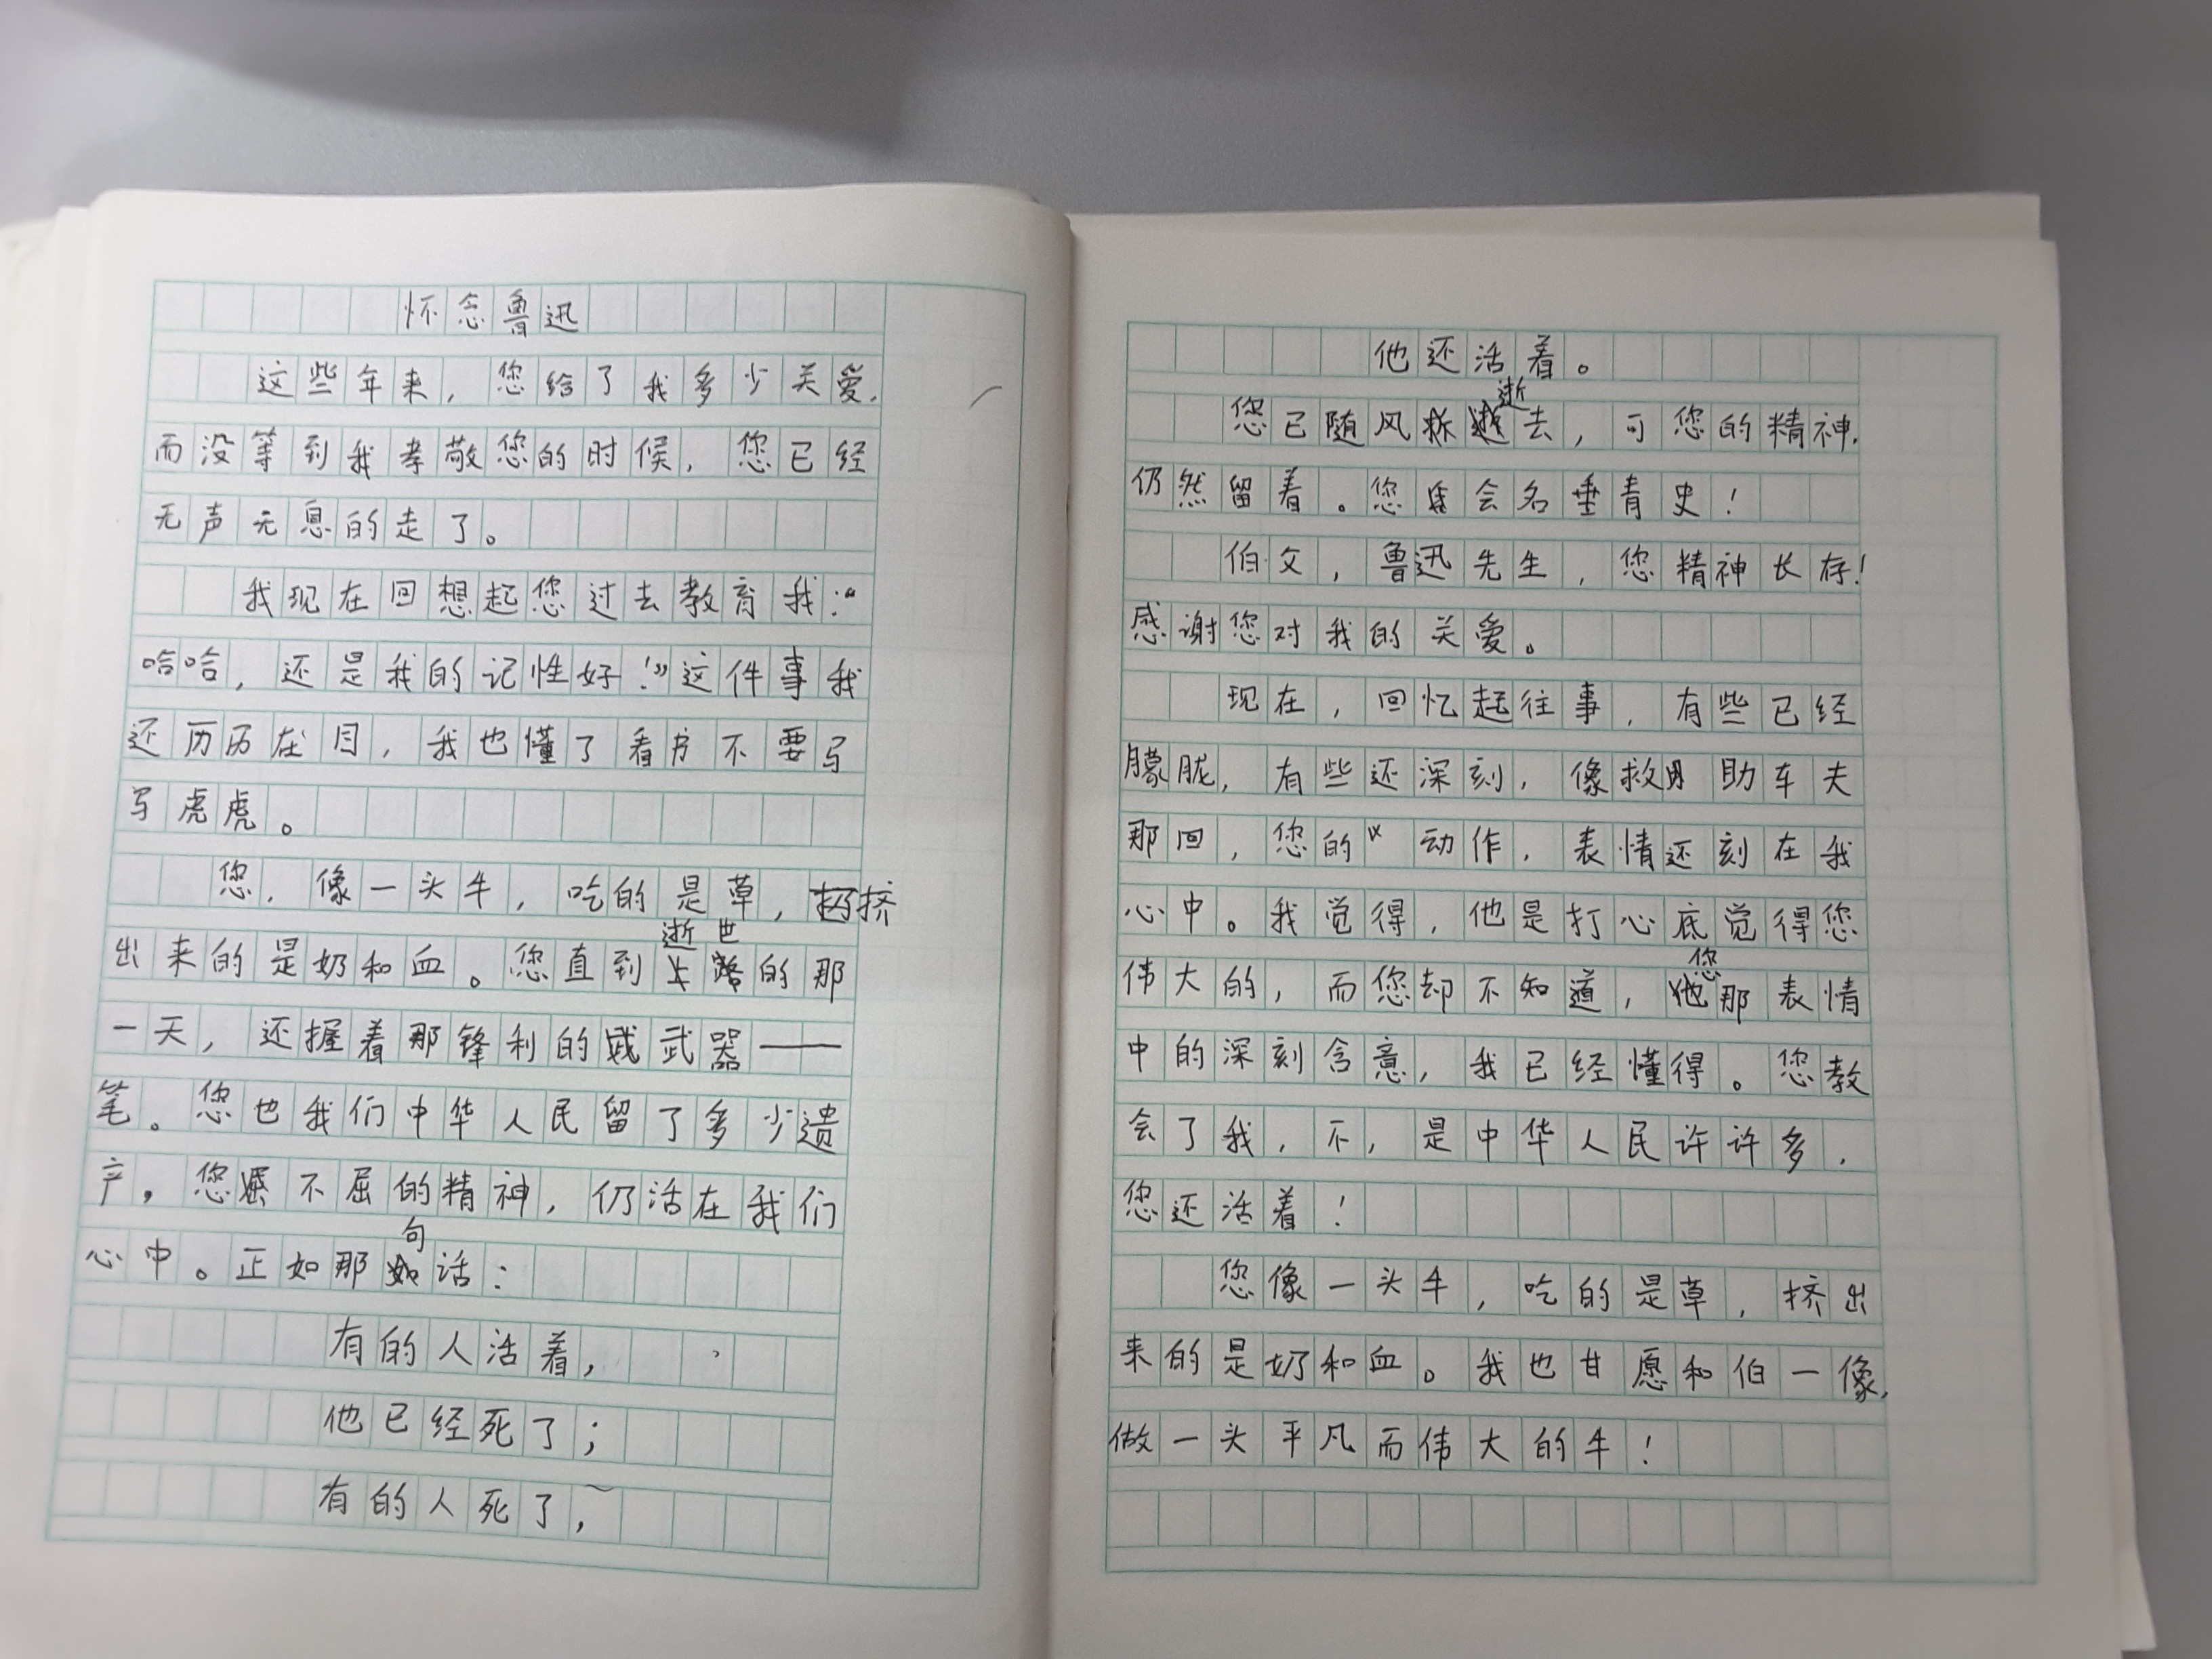 怀念鲁迅
这些年来，您给了我多少关爱，
而没等到我孝敬您的时候，您已经
无声无息的走了。
我现在回想起您过去教育我：“
哈哈，还是我的记性好！”这件事我
还历历在目，我也懂了看书不要马
马虎虎。
您，像一头牛，吃的是草，挤
出来的是奶和血。您直到逝世的那
一天，还握着那锋利的武器——
笔。您也我们中华人民留了多少遗
产，您不屈的精神，仍活在我们
心中。正如那句话：
有的人活着，
他已经死了；
有的人死了，
他还活着。
您已随风逝去，可您的精神，
仍然留着。您会名垂青史！
伯父，鲁迅先生，您精神长存！
感谢您对我的关爱。
现在，回忆起往事，有些已经
朦胧，有些还深刻，像救助车夫
那回，您的动作，表情还刻在我
心中。我觉得，他是打心底觉得您
伟大的，而您却不知道，您那表情
中的深刻含意，我已经懂得。您教
会了我，不，是中华人民许许多，
您还活着！
您像一头牛，吃的是草，挤出
来的是奶和血。我也甘愿和伯一像，
做一头平凡而伟大的牛！